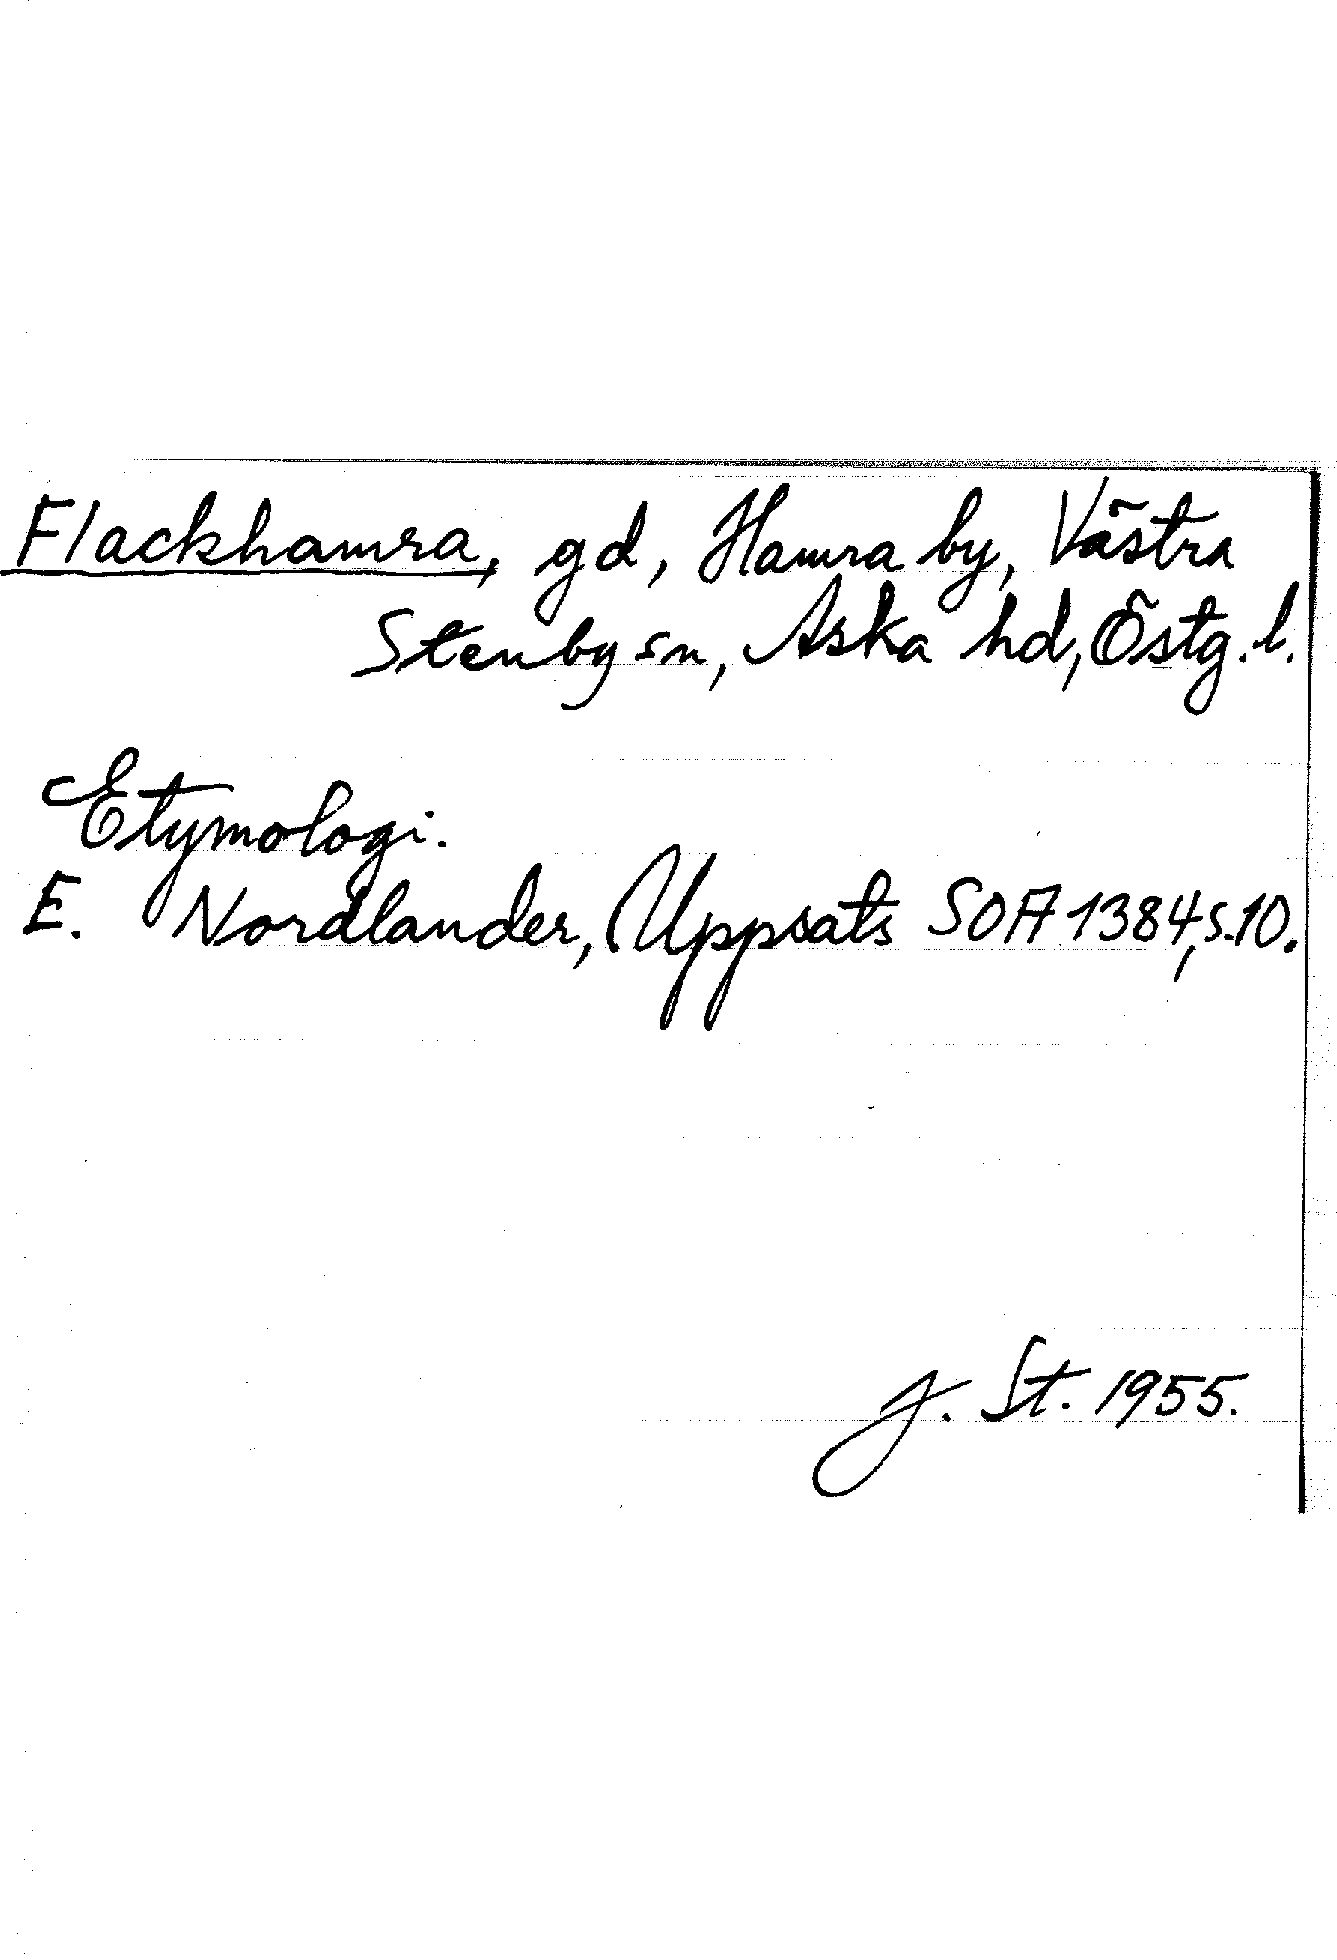 Flackhamra, gd, Hamra by, Västra
Stenby sn, Aska hd, Östg. l.
Etymologi.
E. Nordlander, Uppsats SOA 1384, s. 10.
J. St. 1955.